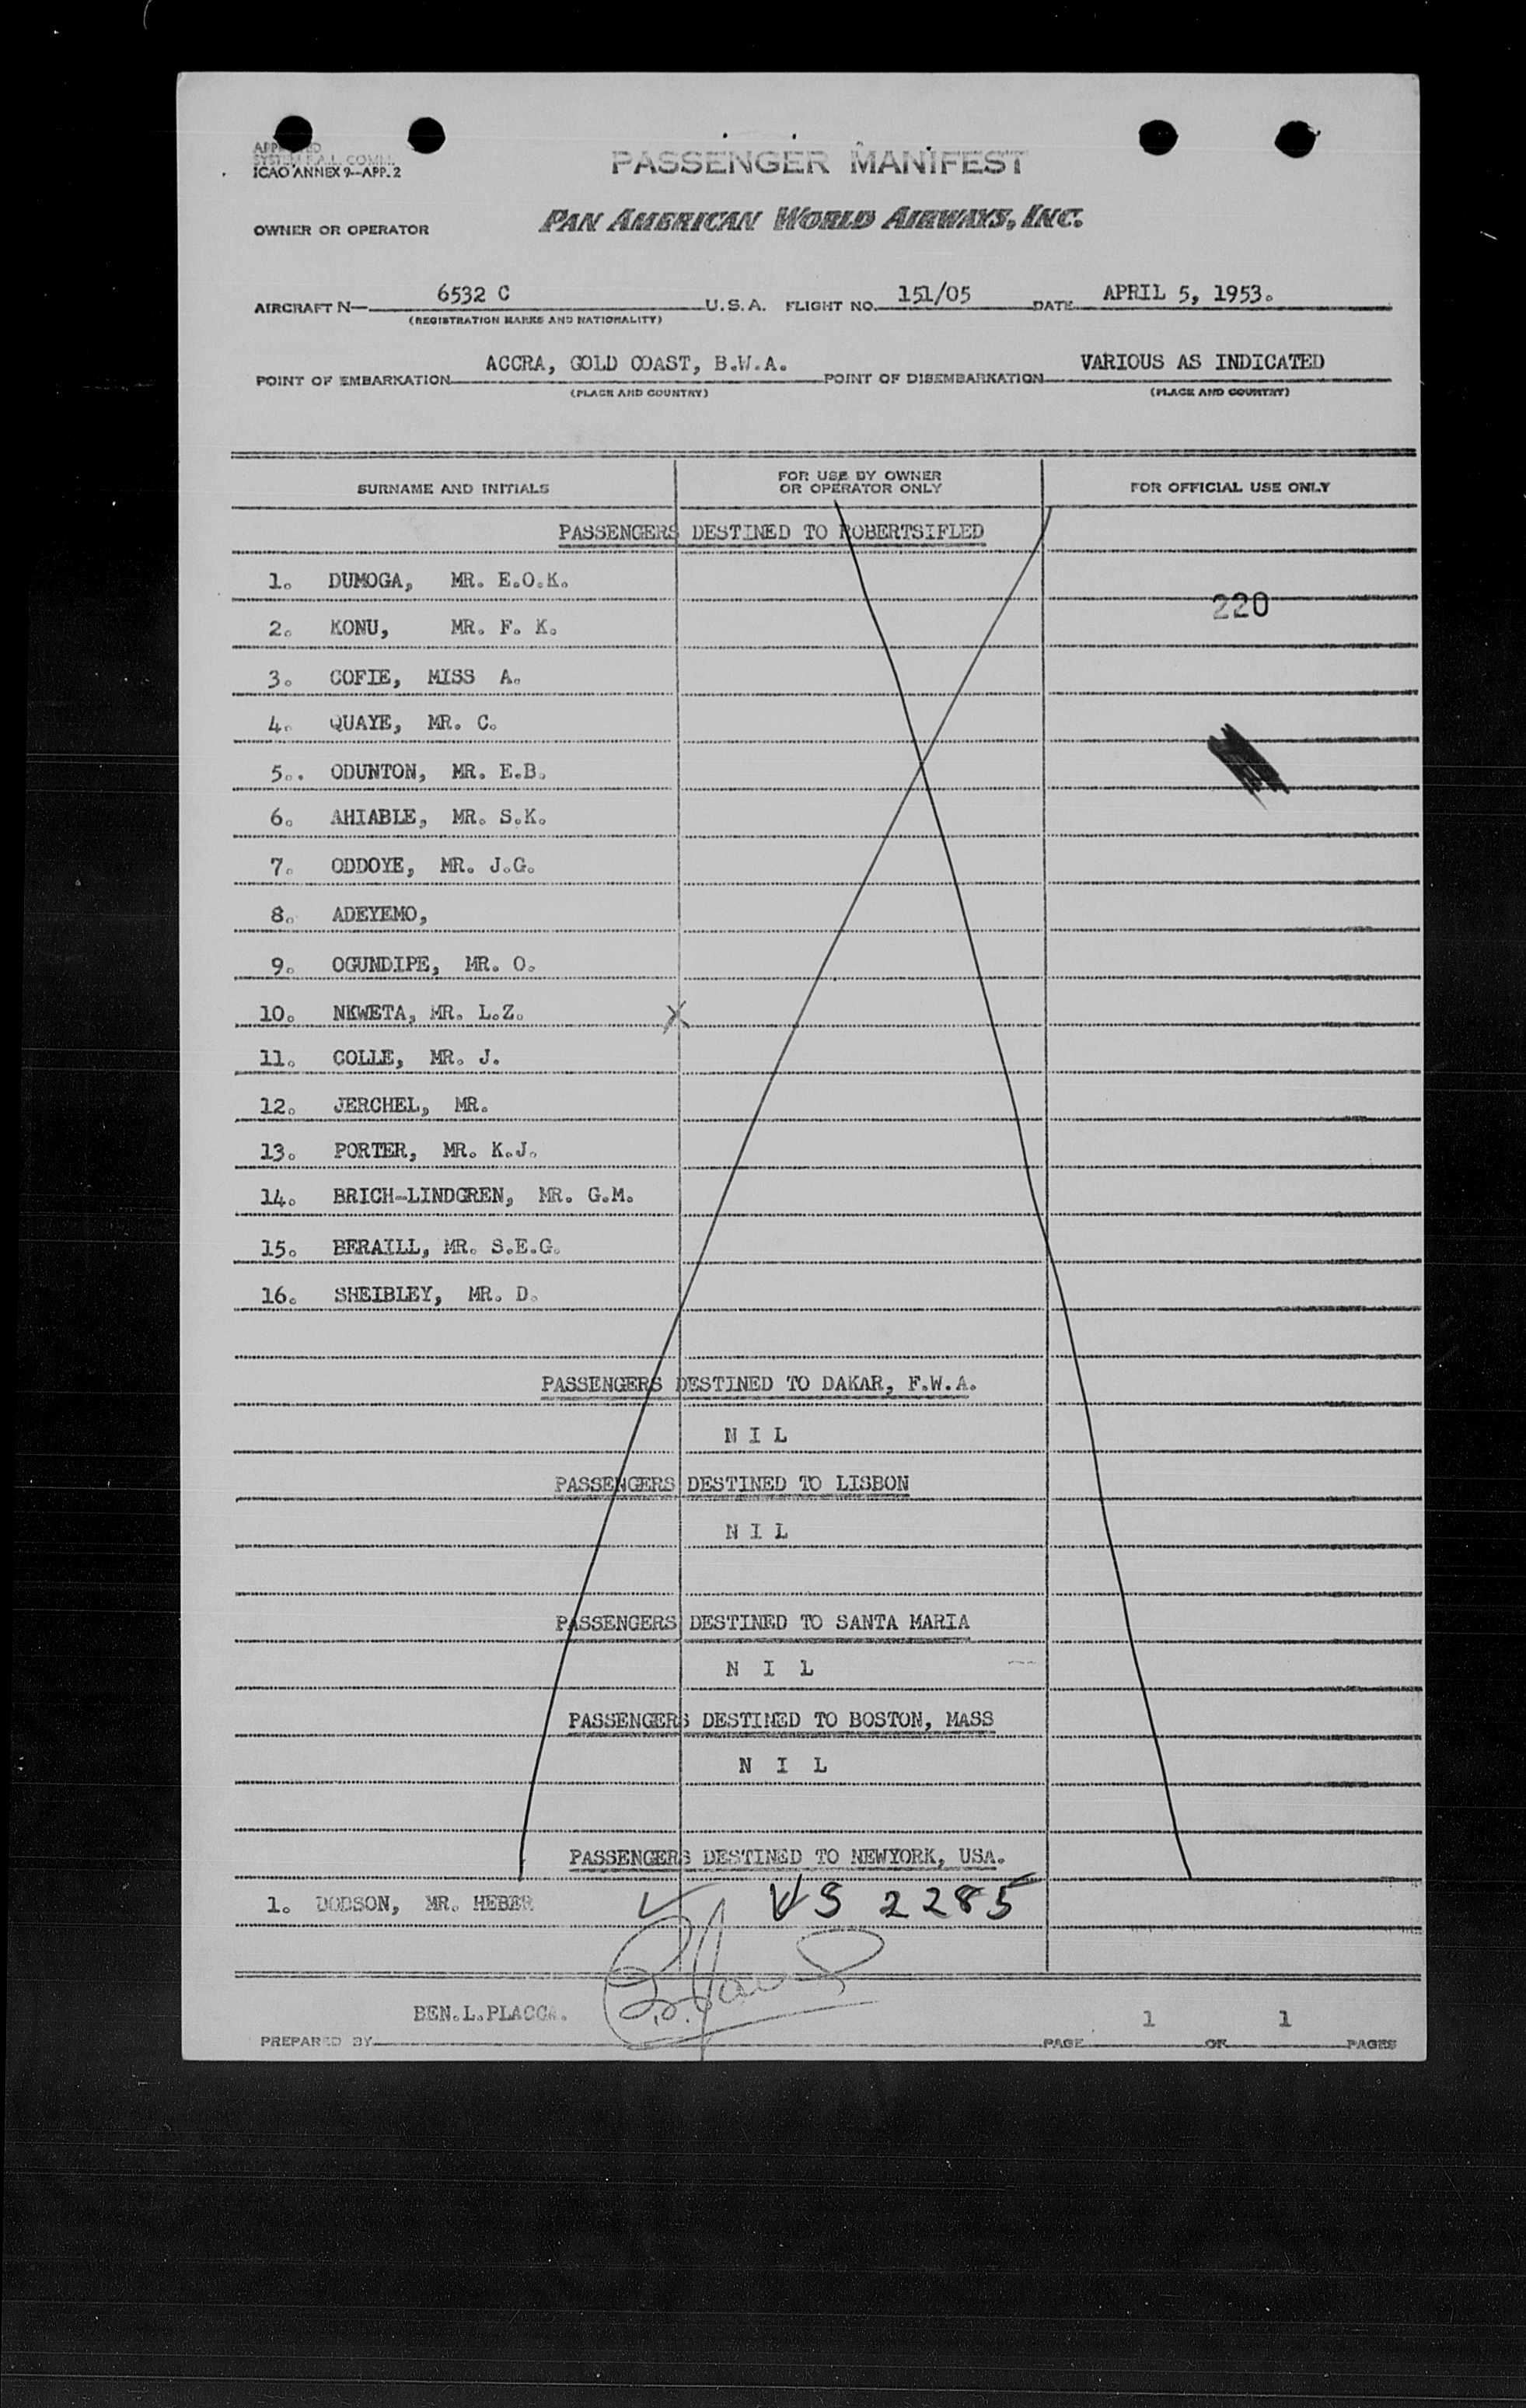 APPROVED
SYSTEM F.A.L. COMM.
ICAO ANNEX 9—APP. 2
PASSENGER MANIFEST
OWNER OR OPERATOR PAN AMERICAN WORLD AIRWAYS, INC.
AIRCRAFT N— 6532 C U.S.A. FLIGHT NO. 151/05 DATE APRIL 5, 1953.
(REGISTRATION MARKS AND NATIONALITY)
POINT OF EMBARKATION ACCRA, GOLD COAST, B.W.A. POINT OF DISEMBARKATION VARIOUS AS INDICATED
(PLACE AND COUNTRY) (PLACE AND COUNTRY)
SURNAME AND INITIALS FOR USE BY OWNER OR OPERATOR ONLY FOR OFFICIAL USE ONLY
PASSENGERS DESTINED TO ROBERTSIFLED
1. DUMOGA, MR. E.O.K.
220
2. KONU, MR. F. K.
3. COFIE, MISS A.
4. QUAYE, MR. C.
5.. ODUNTON, MR. E.B.
6. AHIABLE, MR. S.K.
7. ODDOYE, MR. J.G.
8. ADEYEMO,
9. OGUNDIPE, MR. O.
10. NKWETA, MR. L.Z. X
11. COLLE, MR. J.
12. JERCHEL, MR.
13. PORTER, MR. K.J.
14. BRICH-LINDGREN, MR. G.M.
15. BERAILL, MR. S.E.G.
16. SHEIBLEY, MR. D.
PASSENGERS DESTINED TO DAKAR, F.W.A.
N I L
PASSENGERS DESTINED TO LISBON
N I L
PASSENGERS DESTINED TO SANTA MARIA
N I L
PASSENGERS DESTINED TO BOSTON, MASS
N I L
PASSENGERS DESTINED TO NEWYORK, USA.
1. DODSON, MR. HEBER ✓ VS 2285
BEN.L.PLACCA.
PREPARED BY PAGE 1 OF 1 PAGES